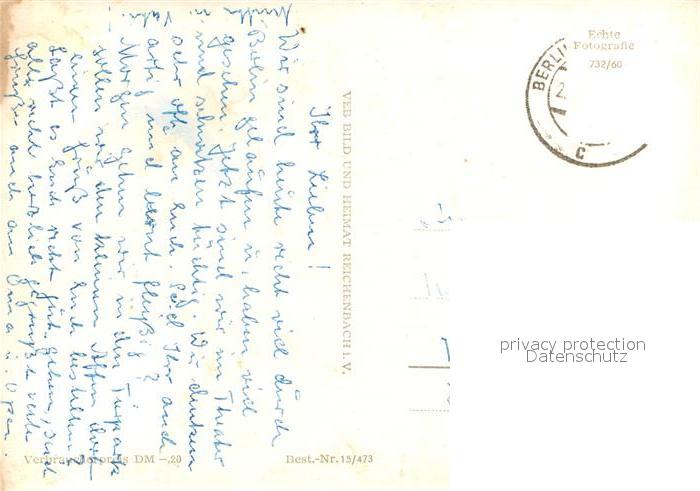 Ihr Lieben!
Wir sind heute recht viel durch
Berlin gelaufen u. haben viel
gesehen. Jetzt sind wir im Theater
und schwitzen tüchtig. Wir denken
sehr oft an Euch. Seid Ihr auch
artig und lernt fleißig?
Morgen gehen wir in den Tierpark
sollen wir den kleinen Affen
einen Gruß von Euch bestellen?
Laßt es Euch recht gut gehen, seid
alle recht herzlich gegrüßt
Grüße auch an Oma u. Opa.
VEB BILD UND HEIMAT REICHENBACH i. V.
Verbraucherpreis DM -,20
Best.-Nr. 15/473
Echte
Fotografie
732/60
BERLIN
C
privacy protection
Datenschutz